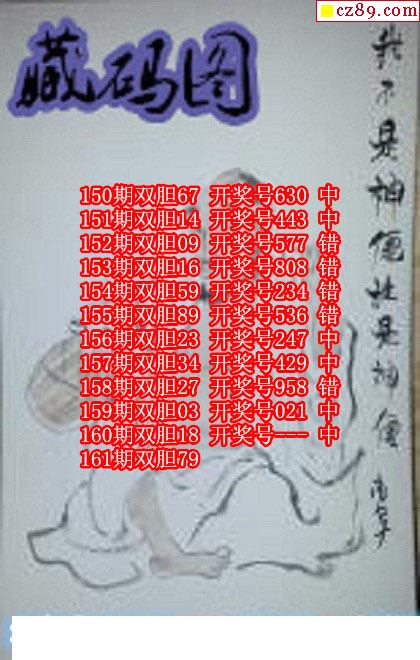 cz89.com
藏码图
150期双胆67 开奖号630 中
151期双胆14 开奖号443 中
152期双胆09 开奖号577 错
153期双胆16 开奖号808 错
154期双胆59 开奖号234 错
155期双胆89 开奖号536 错
156期双胆23 开奖号247 中
157期双胆34 开奖号429 中
158期双胆27 开奖号958 错
159期双胆03 开奖号021 中
160期双胆18 开奖号--- 中
161期双胆79